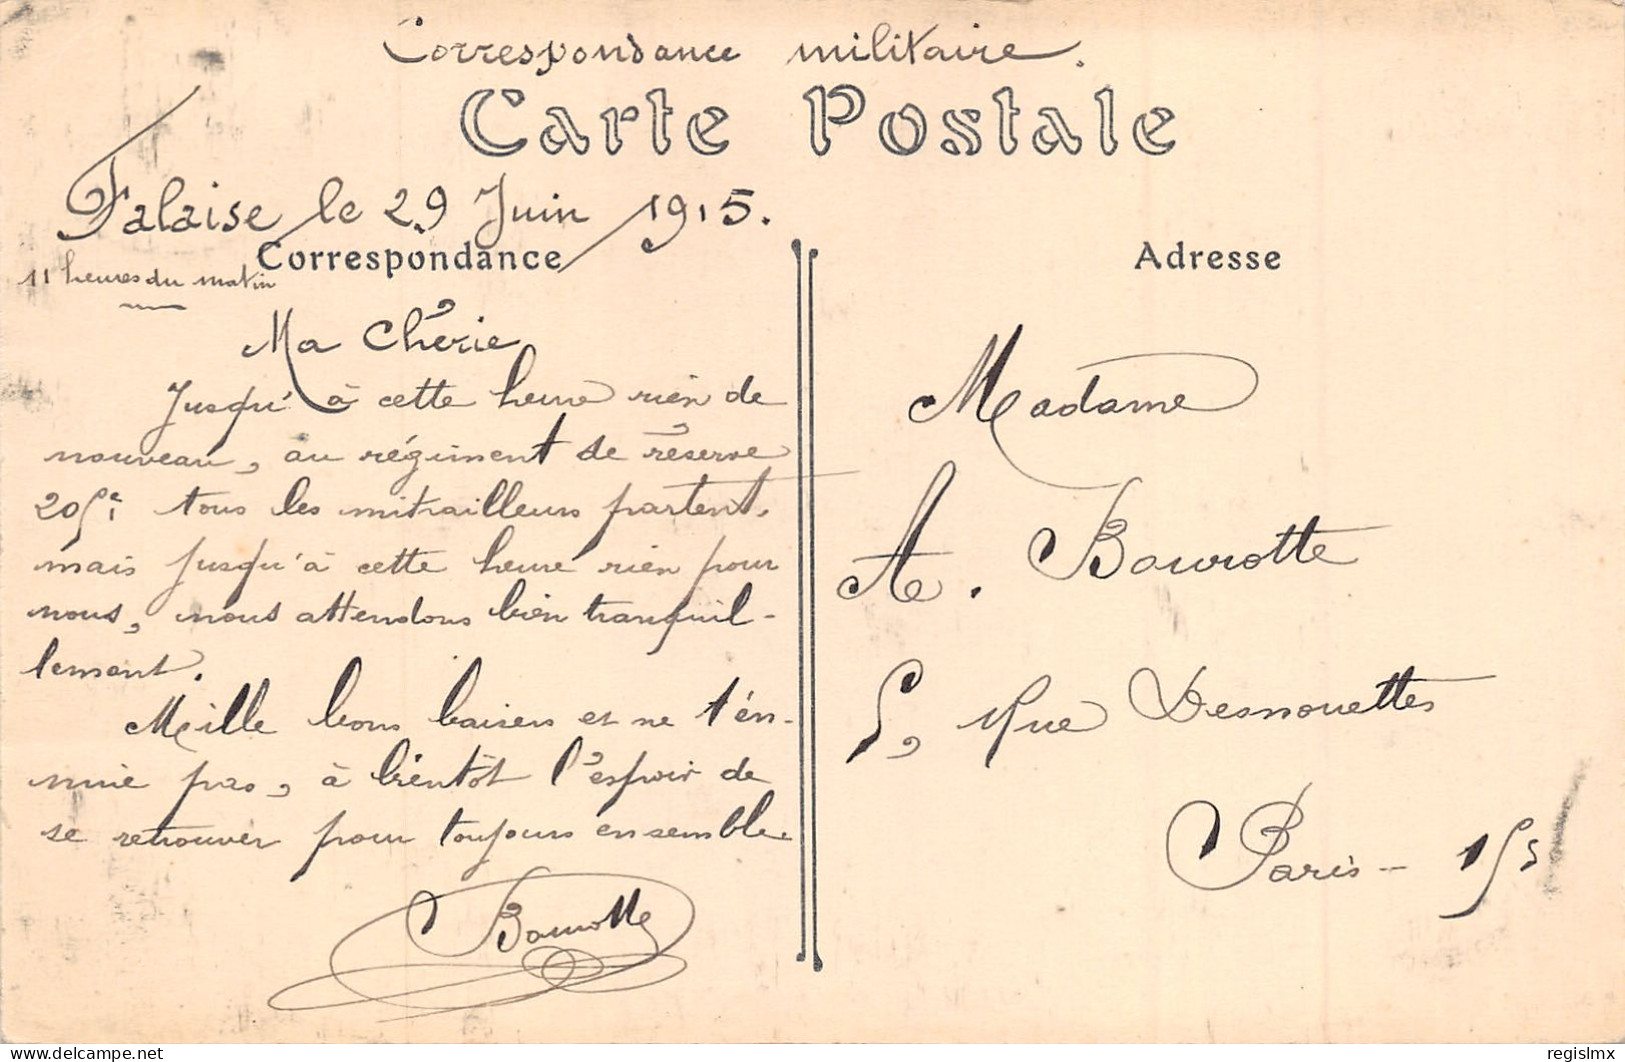 Correspondance militaire.
Carte Postale
Falaise le 29 Juin 1915.
Correspondance
11 heures du matin
Ma Chérie
Jusqu'à cette heure rien de
nouveau, au régiment de réserve
205e tous les mitrailleurs partent,
mais jusqu'à cette heure rien pour
nous, nous attendons bien tranquil-
lement.
Mille bons baisers et ne t'en-
nuie pas, à bientôt l'espoir de
se retrouver pour toujours ensemble.
Bourotte
Adresse
Madame
A. Bourotte
5, Rue Desnouettes
Paris - 15
delcampe.net
regislmx